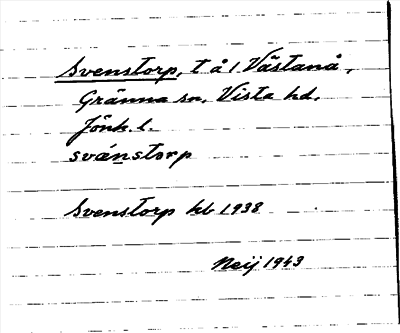 Svenstorp, t å 1 Västanå,
Gränna sn, Vista hd,
Jönk. l.
svánstorp
Svenstorp kb 1938
Neij 1943